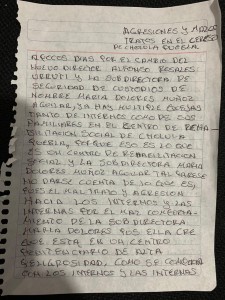 AGRESIONES Y MALOS
TRATOS EN EL CERESO
DE CHOLULA PUEBLA
A POCOS DIAS POR EL CAMBIO DEL
NUEVO DIRECTOR ALFONSO ROSALES
URRUTI Y LA SUBDIRECTORA DE
SEGURIDAD DE CUSTODIOS DE
NOMBRE MARIA DOLORES MUÑOZ
AGUILAR, YA HAY MULTIPLE QUEJAS
TANTO DE INTERNOS COMO DE SUS
FAMILIARES EN EL CENTRO DE REHA
BILITACION SOCIAL DE CHOLULA
PUEBLA, PORQUE ESO ES LO QUE
ES UN CENTRO DE REHABILITACION
SOCIAL Y LA SUBDIRECTORA MARIA
DOLORES MUÑOZ AGUILAR TAL PARESE
NO DARSE CUENTA DE LO QUE ES,
POR EL MALTRATO Y AGRESION
HACIA LOS INTERNOS Y LAS
INTERNAS POR EL MAL COMPORTA
MIENTO DE LA SUBDIRECTORA
MARIA DOLORES PUES ELLA CRE
QUE ESTA EN UN CENTRO
PENITENCIARIO DE ALTA
PENGROSIDAD, COMO SE COMPORTA
CON LOS INTERNOS Y LAS INTERNAS